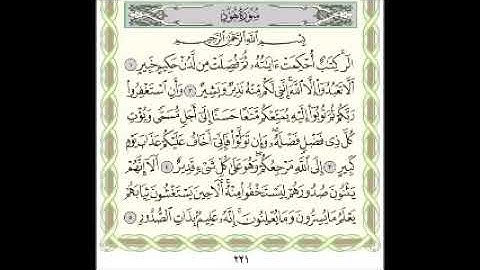 سُورَةُ هُودٍ
بِسْمِ ٱللَّهِ ٱلرَّحْمَٰنِ ٱلرَّحِيمِ
الٓر ۚ كِتَٰبٌ أُحْكِمَتْ ءَايَٰتُهُۥ ثُمَّ فُصِّلَتْ مِن لَّدُنْ حَكِيمٍ خَبِيرٍ ١
أَلَّا تَعْبُدُوٓا۟ إِلَّا ٱللَّهَ ۚ إِنَّنِى لَكُم مِّنْهُ نَذِيرٌ وَبَشِيرٌ ٢ وَأَنِ ٱسْتَغْفِرُوا۟
رَبَّكُمْ ثُمَّ تُوبُوٓا۟ إِلَيْهِ يُمَتِّعْكُم مَّتَٰعًا حَسَنًا إِلَىٰٓ أَجَلٍ مُّسَمًّى وَيُؤْتِ
كُلَّ ذِى فَضْلٍ فَضْلَهُۥ ۖ وَإِن تَوَلَّوْا۟ فَإِنِّىٓ أَخَافُ عَلَيْكُمْ عَذَابَ يَوْمٍ
كَبِيرٍ ٣ إِلَى ٱللَّهِ مَرْجِعُكُمْ ۖ وَهُوَ عَلَىٰ كُلِّ شَىْءٍ قَدِيرٌ ٤ أَلَآ إِنَّهُمْ
يَثْنُونَ صُدُورَهُمْ لِيَسْتَخْفُوا۟ مِنْهُ ۚ أَلَا حِينَ يَسْتَغْشُونَ ثِيَابَهُمْ
يَعْلَمُ مَا يُسِرُّونَ وَمَا يُعْلِنُونَ ۚ إِنَّهُۥ عَلِيمٌۢ بِذَاتِ ٱلصُّدُورِ ٥
٢٢١